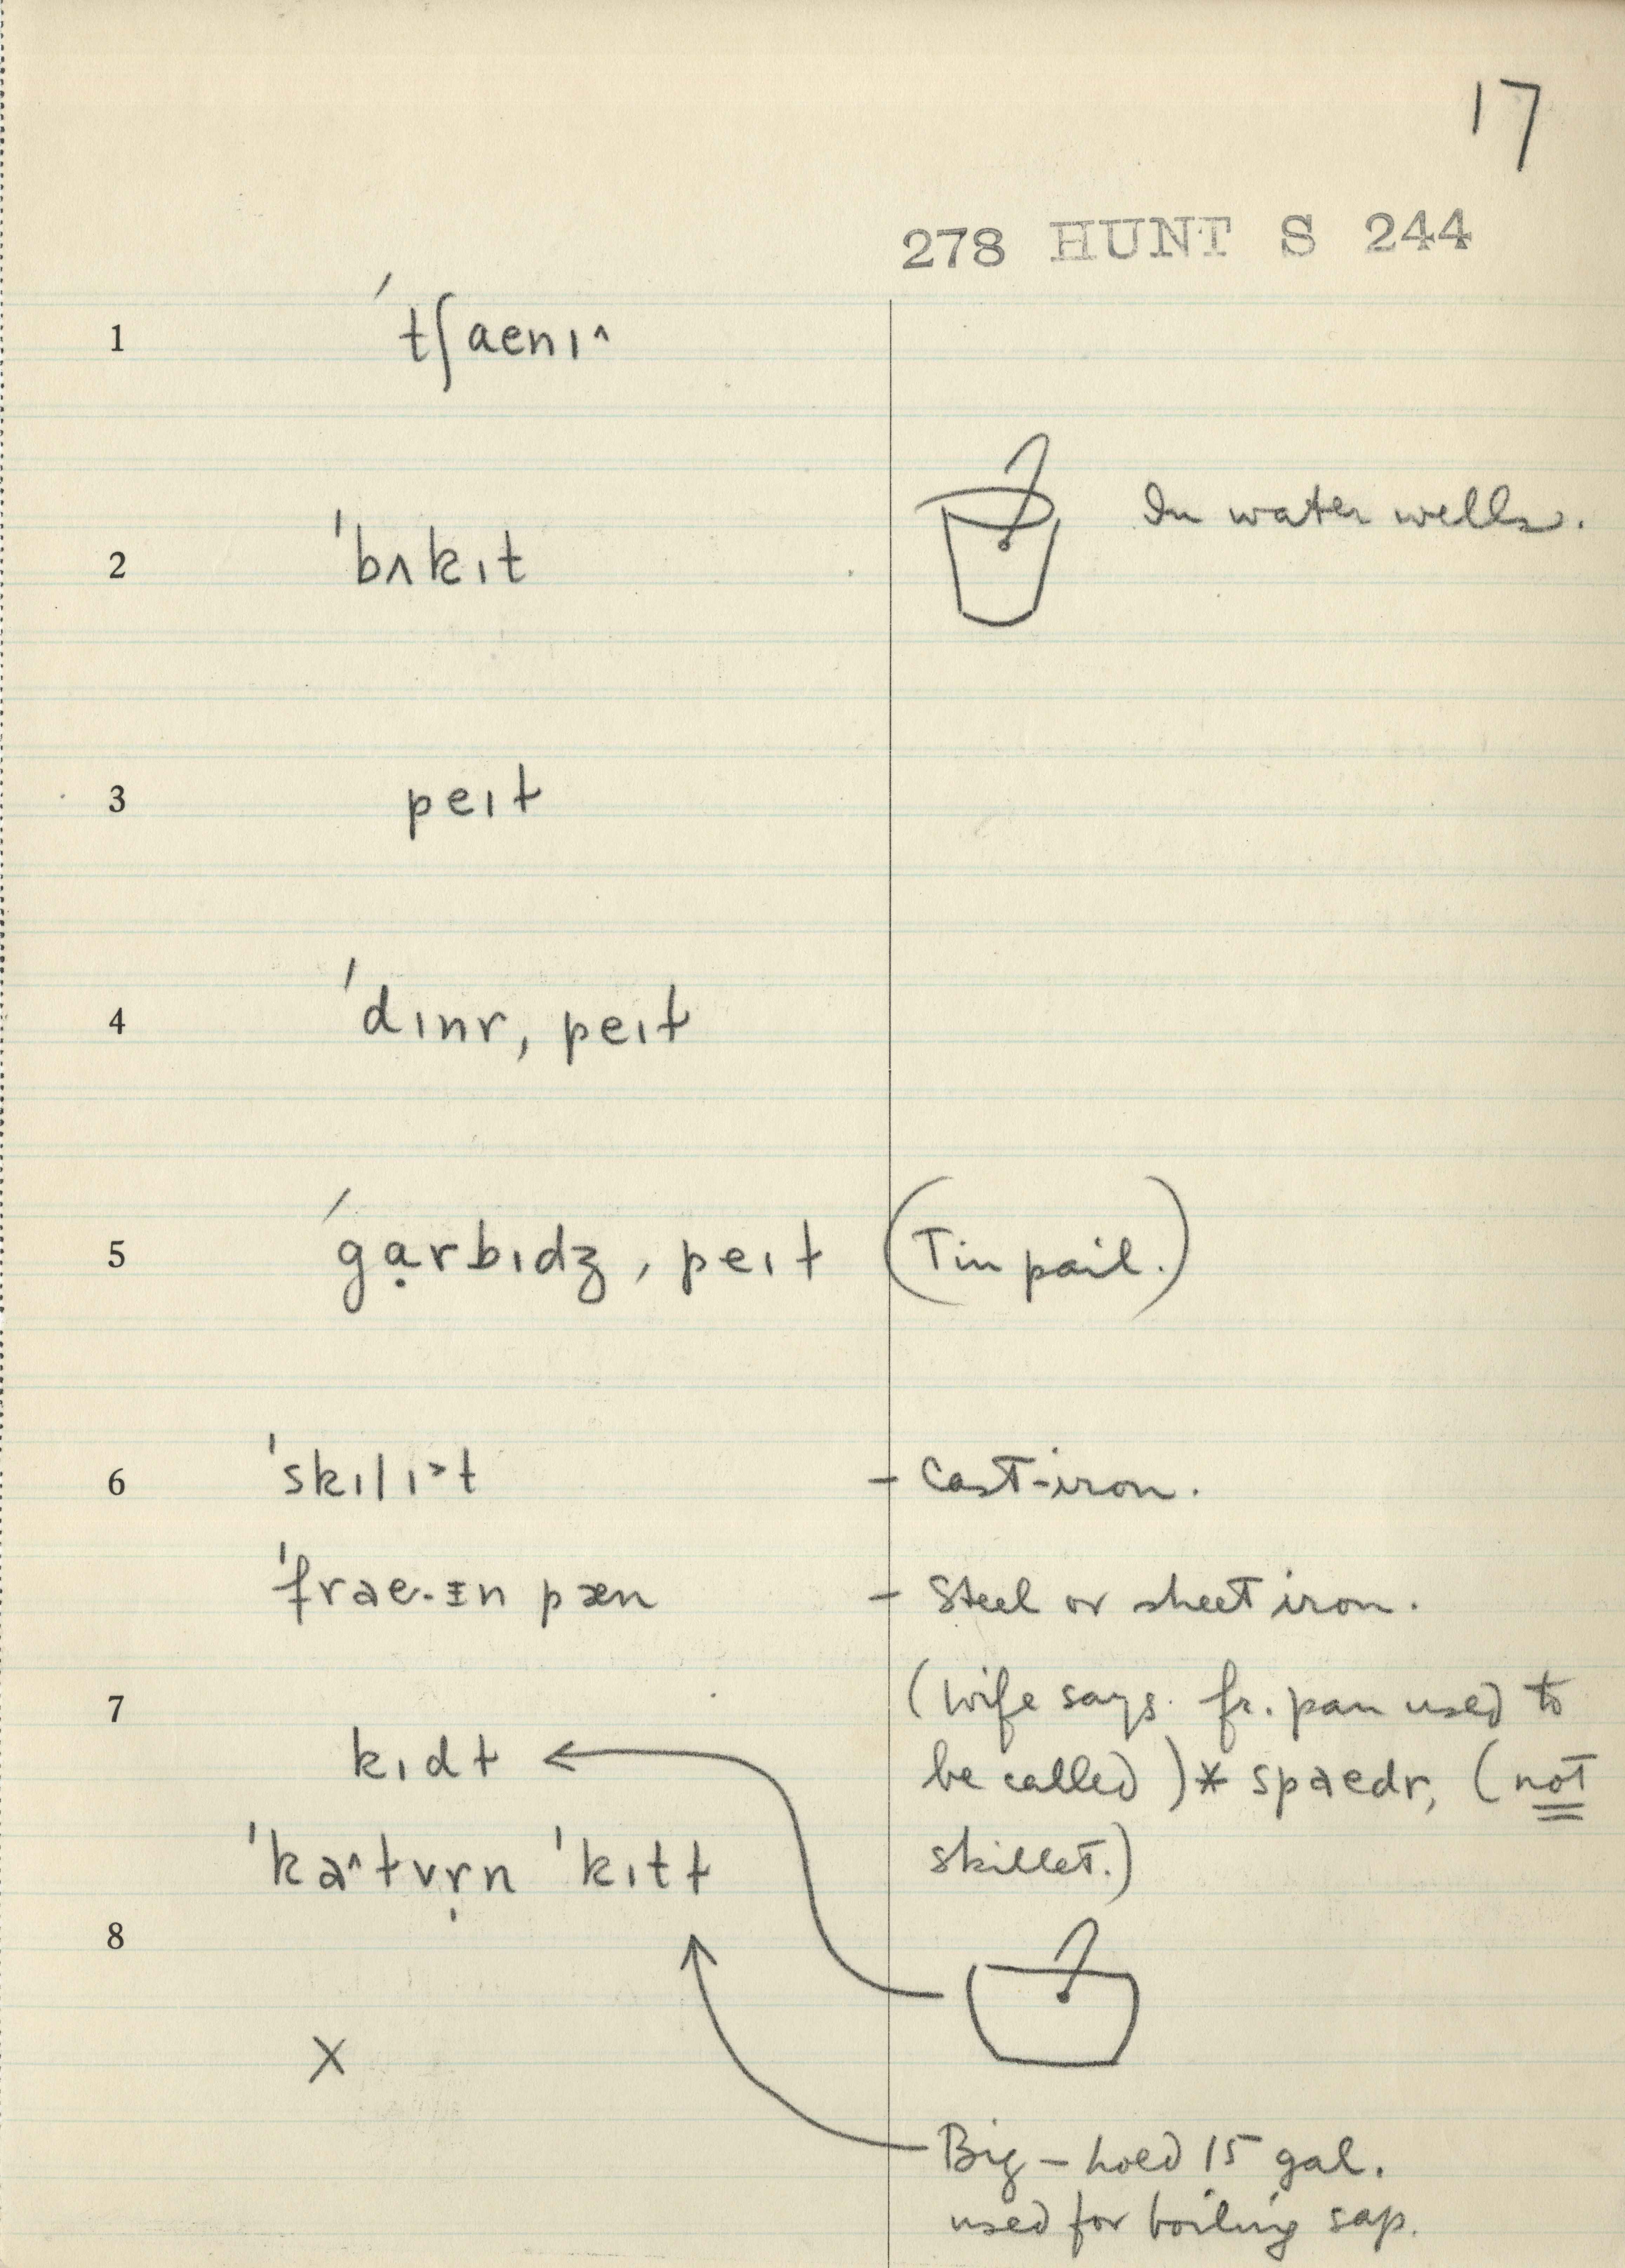 17
278 HUNT S 244
1 ˈtʃaenɪ^
2 ˈbʌkɪt In water wells.
3 peɪɫ
4 ˈdɪnr ˌpeɪɫ
5 ˈgɑ̣rbɪdʒ ˌpeɪɫ (Tin pail.)
6 ˈskɪlɪ˃t - Cast-iron.
ˈfrae·ɪn pæn - Steel or sheet iron.
7 (Wife says fr. pan used to
kɪdɫ be called) * spaedr, (not
ˈkaʌɫvṛn ˈkɪtɫ skillet.)
8
X
Big - hold 15 gal.
used for boiling sap.